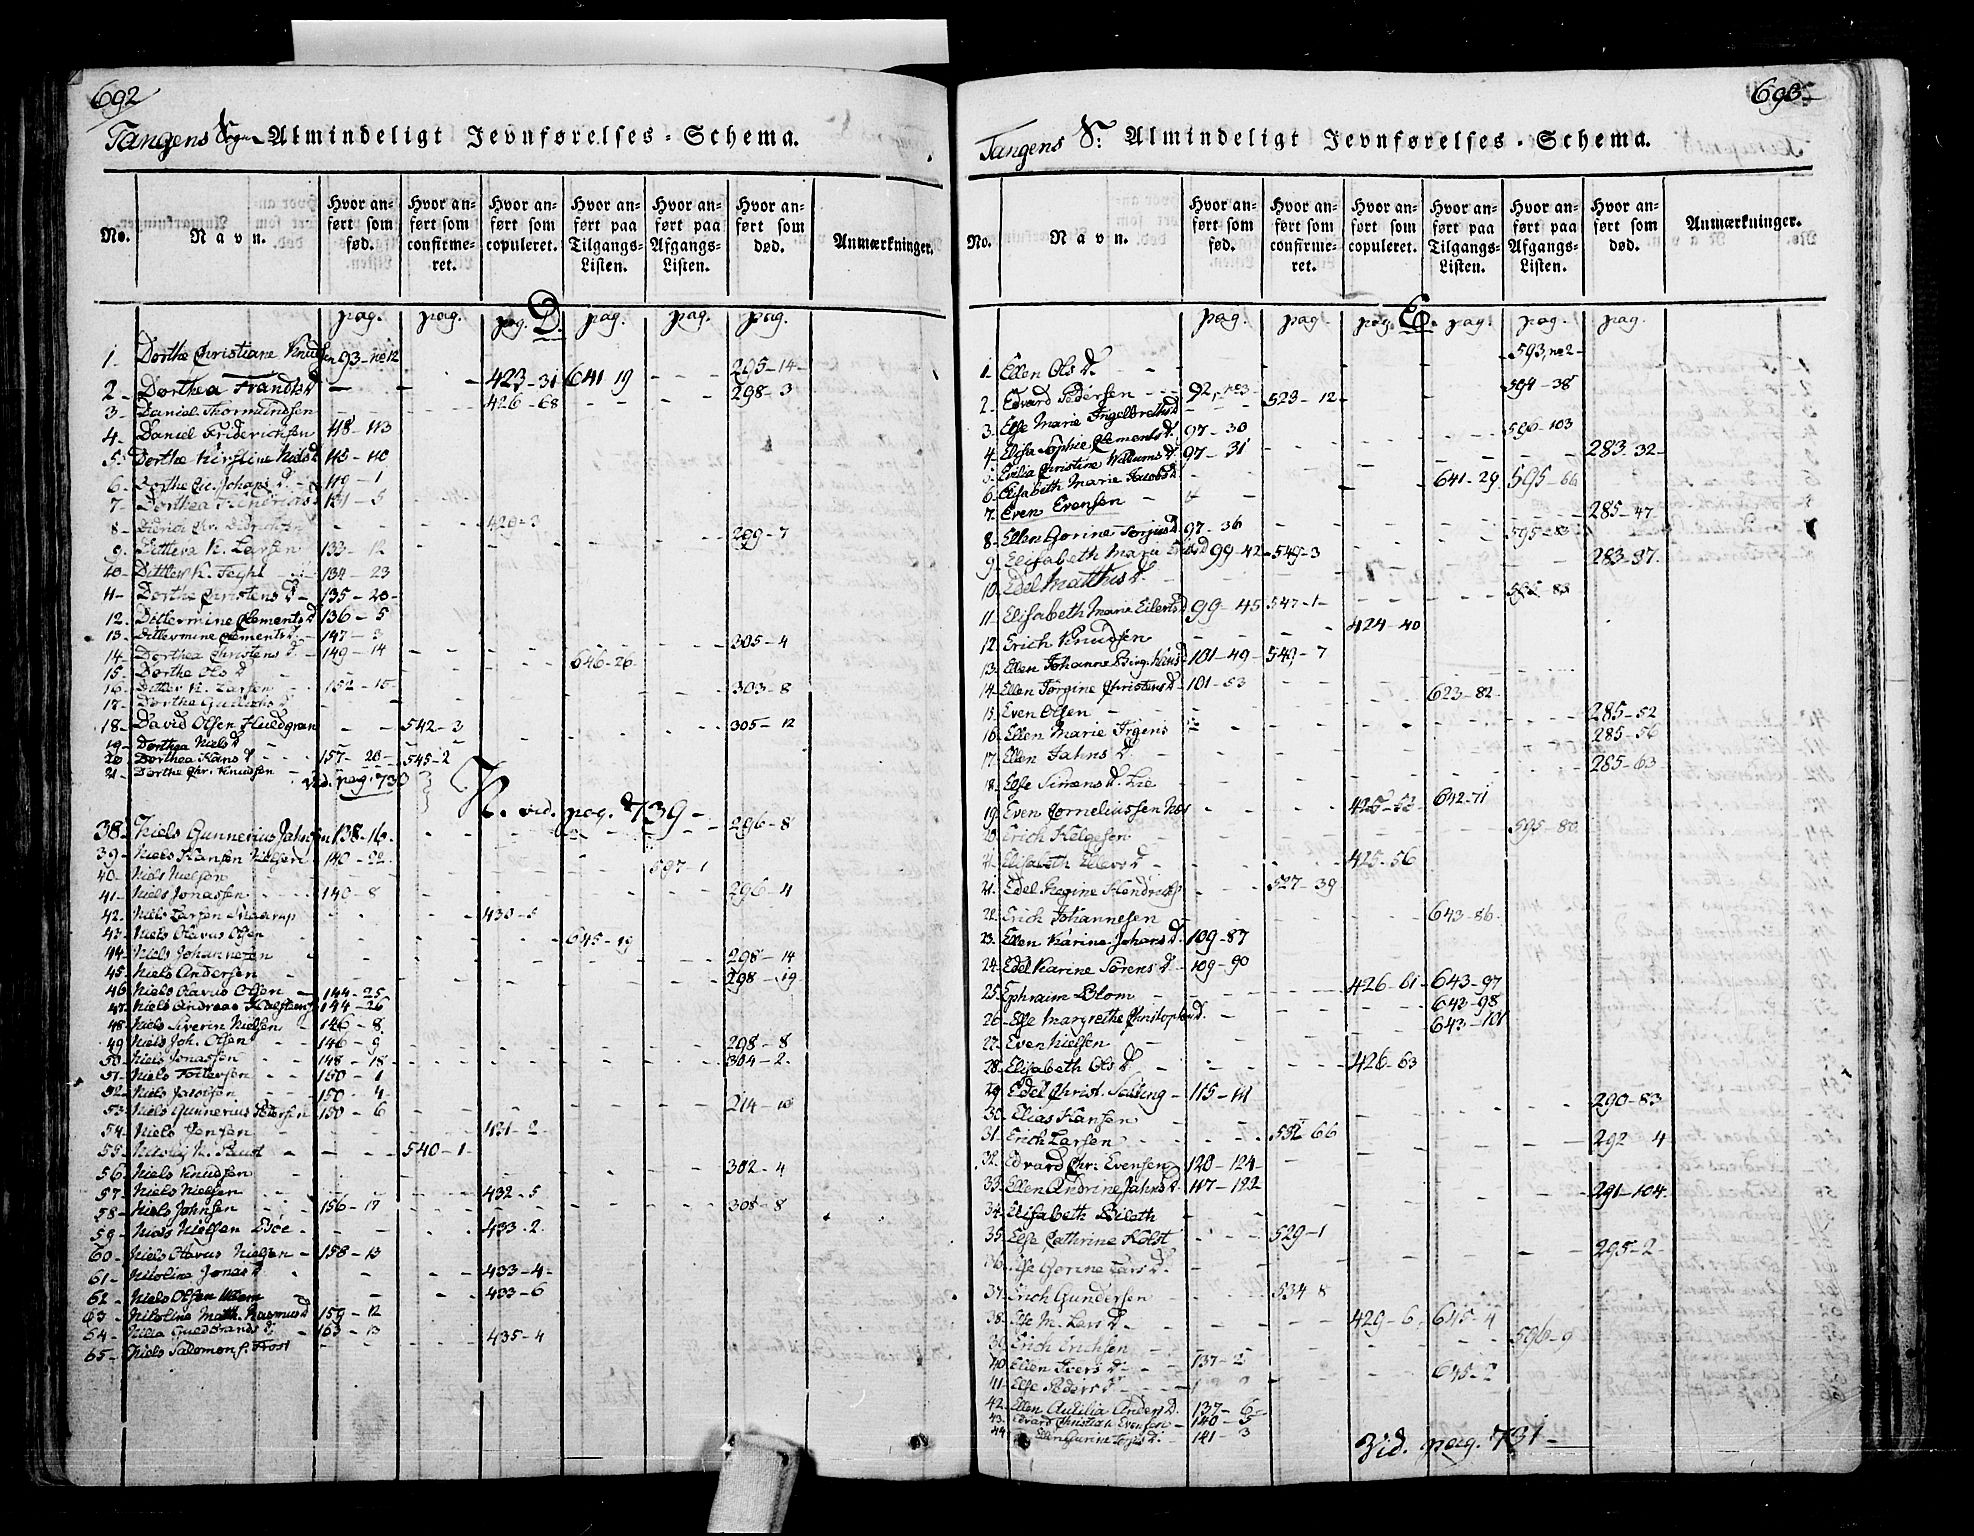 692
Tangens Sogn Almindeligt Jevnførelses-Schema.
No.
Navn.
Hvor anført som fød.
Hvor anført som confirmeret.
Hvor anført som copuleret.
Hvor anført paa Tilgangs-Listen.
Hvor anført paa Afgangs-Listen.
Hvor anført som død.
Anmærkninger.
D.
pag. pag. pag. pag. pag. pag.
1 Dorthe Christiane Knudsen 93-no12
295-14
2 Dorthea Frands D 423-31 641 19 298-3
3 Daniel Thormundsen 426-68
4 Daniel Friderichsen 118-113
5 Dorthe Kirstine Niels D 115-110
6 Dorthe Johans D 119-1
7 Dorthea Hendrichs 131-5
8 Didrich Chr. Didrichsen 420-3
299-7
9 Ditlera N. Larsen 133-12
10 Ditlew N. 134-23
11 Dorthe Christens D 135-20
12 Ditlermine Clements D 136-5
13 Ditlermine Clements D. 147-3
305-4
14 Dorthea Christens D. 149-14
15 Dorthe Ols D 646-26
16 Ditlev N. Larsen 152-15 303-8
17 Dorthe D
18 David Olsen Huldgran 542-3 305-12
19 Dorthea Niels D
20 Dorthea Hans D 157-20 545-2
21 Dorthe Chr. Knudsen
vid. pag. 730
N. vid. pag. 739
38 Niels Gunnerius Jahnsen 138-16 296-8
39 Niels Hansen Nielsen 140-22
40 Niels Nielsen 597-1
41 Niels Jonassen 140-8 296-4
42 Niels Larsen Skaarup 430-5
43 Niels Olavus Olsen 645-19
44 Niels Johannesen 298-14
45 Niels Andersen 298-19
46 Niels Olavus Olsen 144-25
47 Niels Andreas 144-26
48 Niels Siverin Nielsen 146-8
49 Niels Joh. Olsen 146-9 298-8
50 Niels Jonassen 148-18 304-2
51 Niels 150-1
52 Niels Jacobsen 150-4
53 Niels Gunnerius Petersen 150-6 214-10
54 Niels Jensen 431-2
55 Nicolaj N. 540-1
56 Niels Knudsen 302-4
57 Niels Nielsen 432-5
58 Niels Johnsen 156-17 308-8
59 Niels Nielsen 433-2
60 Niels Olavus Nielsen 158-13
61 Nicoline Jonas D 433-4
62 Niels Olsen 433-6
63 Nicoline Math. Rasmus D 159-12
64 Nilia Guldbrands D. 163-13 435-4
65 Niels Salomons.
693
Tangens S. Almindeligt Jevnførelses-Schema.
No.
Navn.
Hvor anført som fød.
Hvor anført som confirmeret.
Hvor anført som copuleret.
Hvor anført paa Tilgangs-Listen.
Hvor anført paa Afgangs-Listen.
Hvor anført som død.
Anmærkninger.
E.
pag. pag. pag. pag. pag. pag.
1 Ellen Ols D. 593, no 2
2 Edvard Pedersen 92, no 3 594-38
3 Else Marie Ingelbreths D 97-30 523-12
4 Elisa Sophie Clements D. 97-31 596-103
5 Emilia Christine Willums D 283-32
6 Elisabeth Marie Jacobs D 641-29 595-66
7 Even Evensen 285-47
8 Ellen Gorine Torjus D 97-36 595-83
9 Elisabeth Maria D 99-42 549-3 283-37
10 Edel Matthis D. 595-83
11 Elisabeth Marie Eilerts D 99-45 547-1
424-40
12 Erich Knudsen
13 Ellen Johanne 101-49 549-7
14 Ellen Jørgine Christens D. 101-53 623-82
15 Even Olsen 285-52
16 Ellen Marie Irgens 285-56
17 Ellen Jahns D. 285-63
18 Else Simens D. Lie
19 Even Corneliussen Næs 425-53 642-71
20 Erich Helgesen 595-80
21 Elisabeth Ellevs D 425-56
21 Edel Regine Hendrichs 527-39
22 Erich Johannesen 643-86
23 Ellen Karine Johans D. 109-87
24 Edel Karine Sørens D. 109-90
25 Ephraim Blom 426-61 643-97
26 Else Margrethe Christophers D. 643-98
643-101
27 Even Nielsen
28 Elisabeth Ols D 426-63
29 Edel Christ. Solling 115-111 290-83
30 Elias Hansen
31 Erich Larsen 532 66 292 4
32 Edvard Chr. Evensen 120-124
33 Ellen Andrine Jahns D 117-122 291-104
34 Elisabeth Bileth
35 Else Cathrine Holst 529-1 295-2
36 Else Gorine Lars D.
37 Erich Gundersen 534 8
38 Else M. Lars D. 429-6 645-4
39 Erich Erichsen 596-9
40 Ellen Ivers D 137-2 645-2
41 Else Peders D
42 Ellen Anders D. 137-6
43 Edvard Christian Evensen 140-5
44 Ellen Gurine D. 141-3
Vid. pag. 731